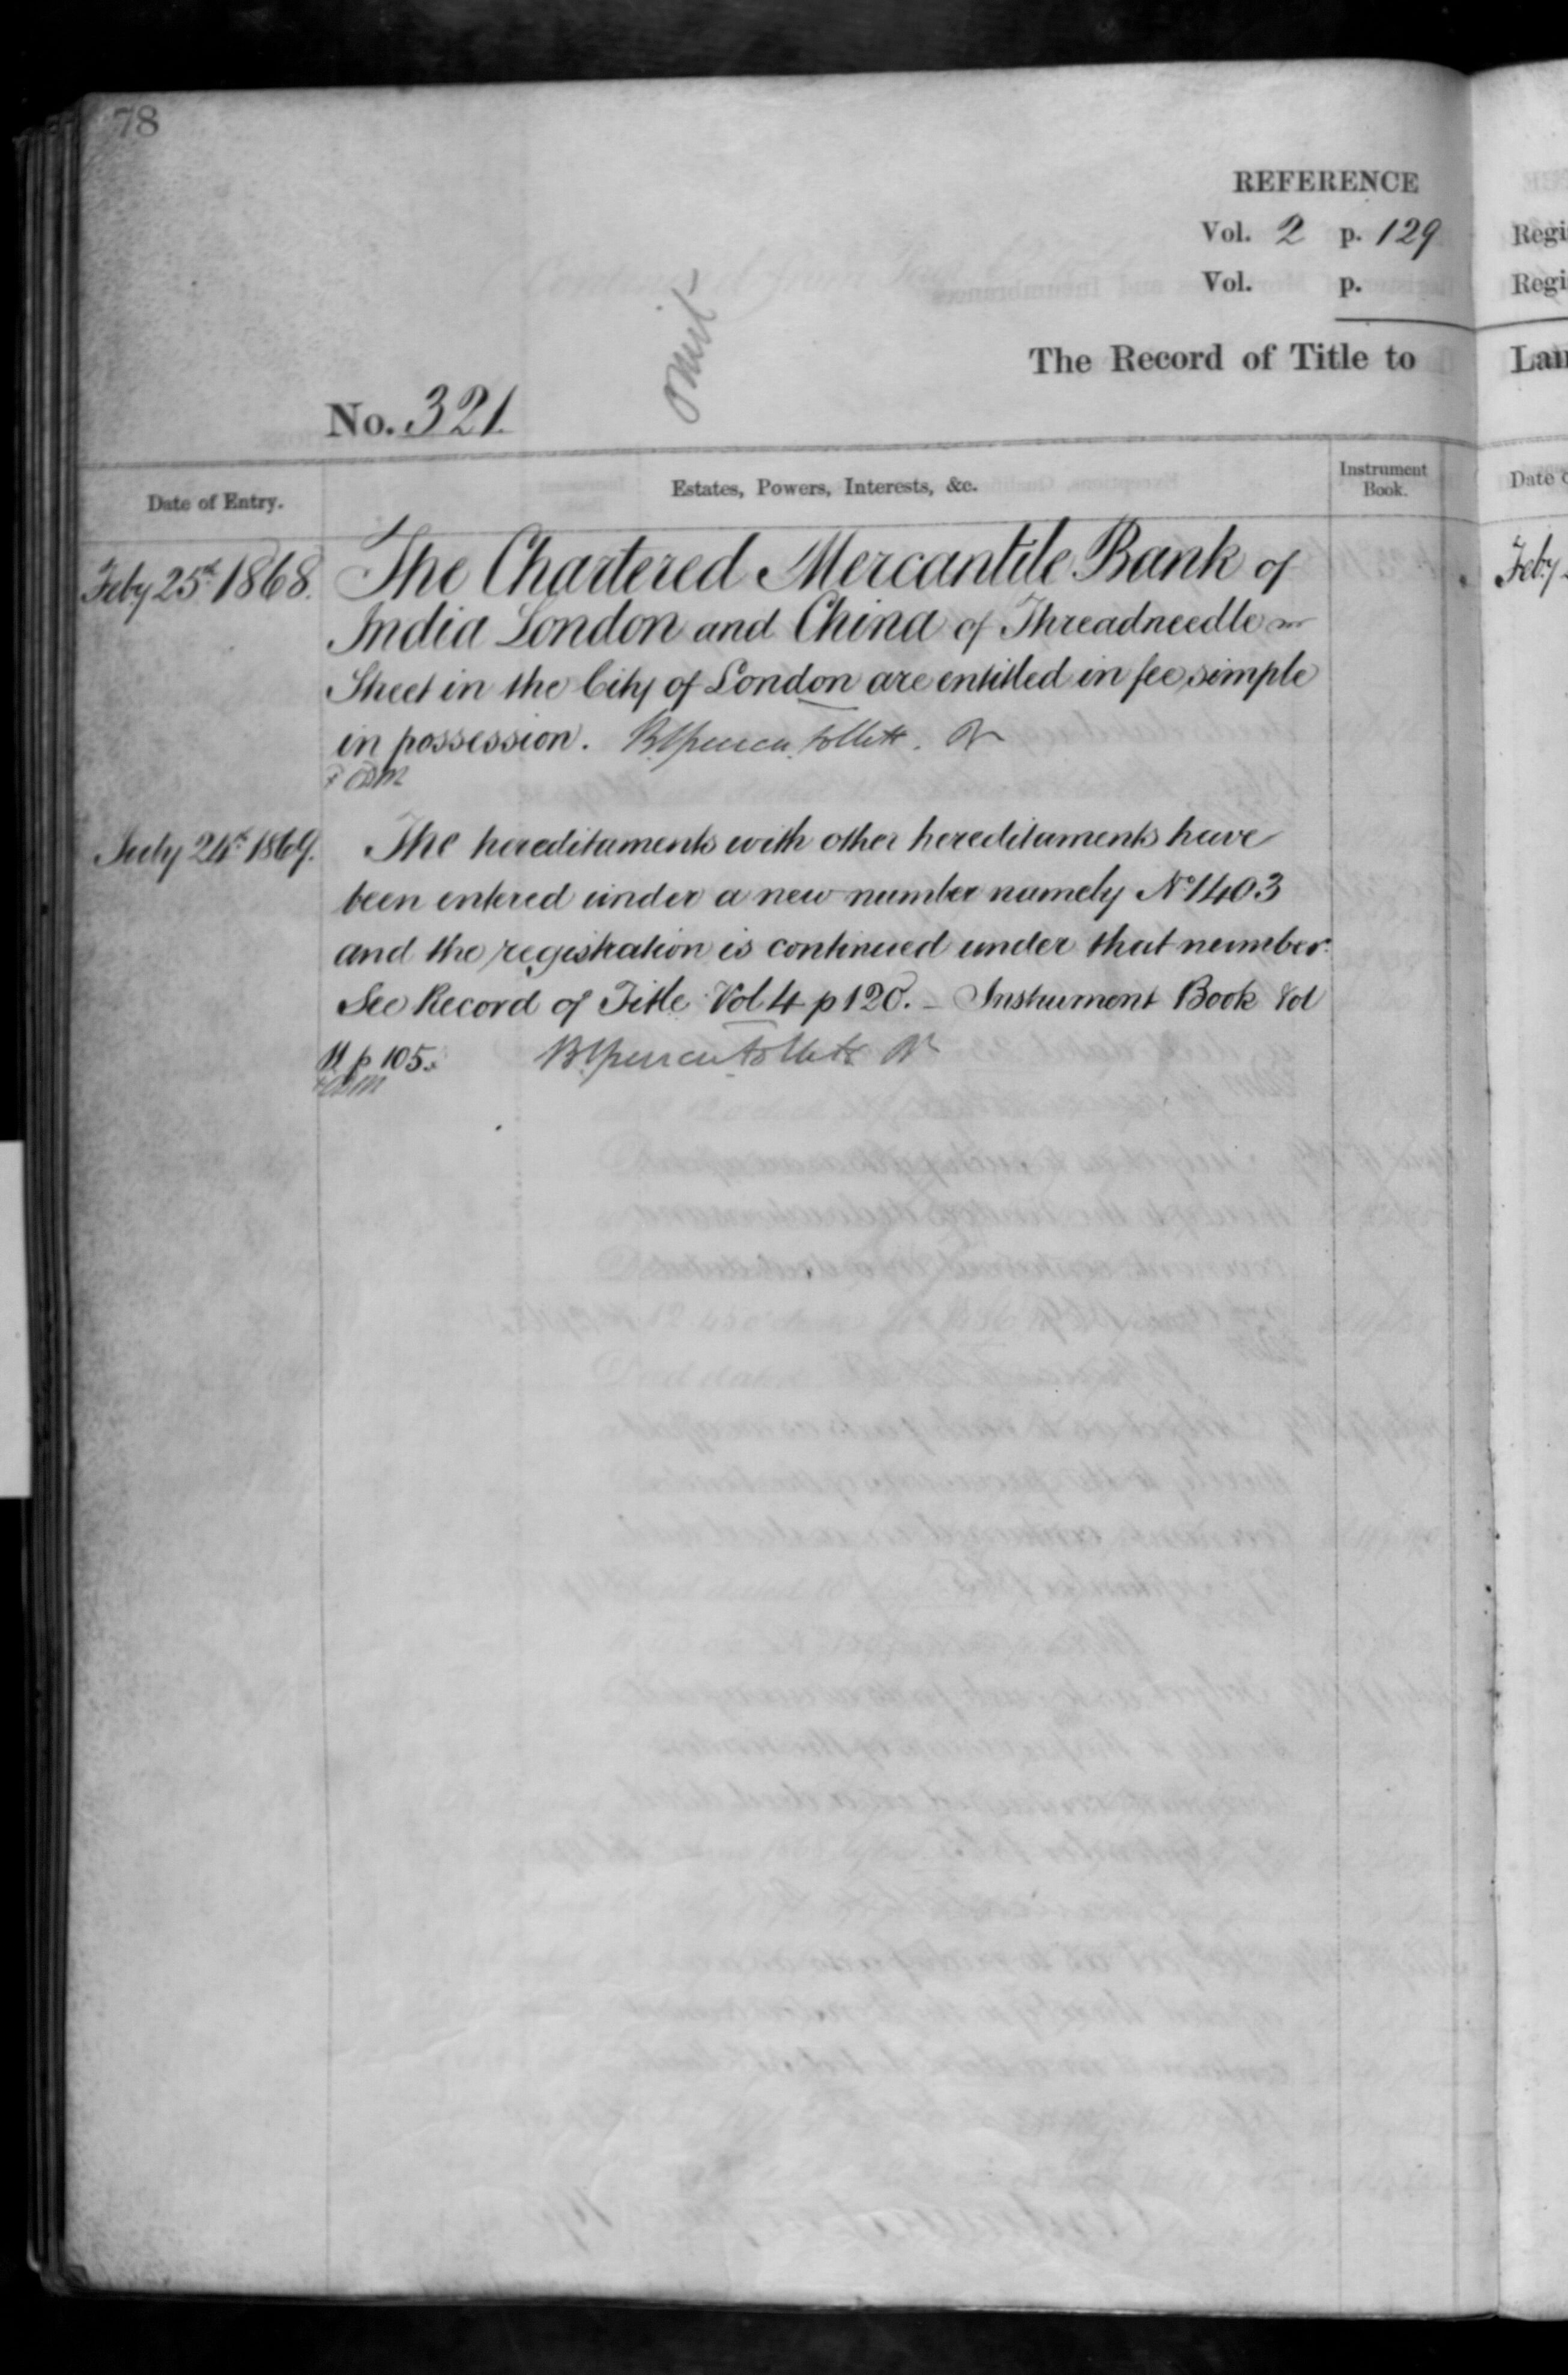 78
REFERENCE
Vol. 2 p. 129
Vol. p.
omit
The Record of Title to
No. 321
Date of Entry.
Estates, Powers, Interests, &c.
Instrument
Book.
Feby 25th 1868.
The Chartered Mercantile Bank of
India London and China of Threadneedle
Street in the City of London are entitled in fee simple
in possession. B. Spencer Follett. Rr
July 24th 1869.
The hereditaments with other hereditaments have
been entered under a new number namely No 1403
and the registration is continued under that number.
See Record of Title Vol 4 p 120. – Instrument Book Vol
11 p 105.
B. Spencer Follett Rr
Regi
Regi
Lan
Date o
Feby 2